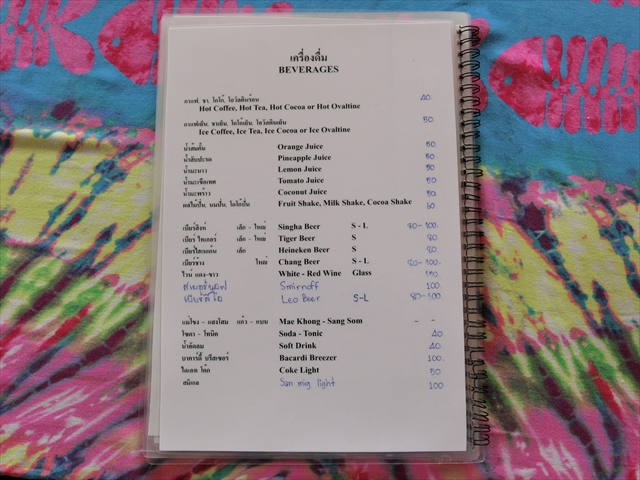 เครื่องดื่ม
BEVERAGES
กาแฟ, ชา, โกโก้, โอวัลตินร้อน 40.
Hot Coffee, Hot Tea, Hot Cocoa or Hot Ovaltine
กาแฟเย็น, ชาเย็น, โกโก้เย็น, โอวัลตินเย็น 50
Ice Coffee, Ice Tea, Ice Cocoa or Ice Ovaltine
น้ำส้มคั้น Orange Juice 50
น้ำสับปะรด Pineapple Juice 50
น้ำมะนาว Lemon Juice 50
น้ำมะเขือเทศ Tomato Juice 50
น้ำมะพร้าว Coconut Juice 50
ผลไม้ปั่น, นมปั่น, โกโก้ปั่น Fruit Shake, Milk Shake, Cocoa Shake 50
เบียร์สิงห์ เล็ก - ใหญ่ Singha Beer S - L 80-100.
เบียร์ ไทเกอร์ เล็ก - ใหญ่ Tiger Beer S 80
เบียร์ไฮเนเก้น เล็ก Heineken Beer S 80
เบียร์ช้าง ใหญ่ Chang Beer S - L 80-100.
ไวน์ แดง-ขาว White - Red Wine Glass 150
Smirnoff 100
Leo Beer S-L 80-100
แม่โขง - แสงโสม แก้ว - แบน Mae Khong - Sang Som - -
โซดา - โทนิค Soda - Tonic 40
น้ำอัดลม Soft Drink 40
บาคาร์ดี้ บรีสเซอร์ Bacardi Breezer 100.
ไดเอท โค้ก Coke Light 50
สมิกล San mig light 100